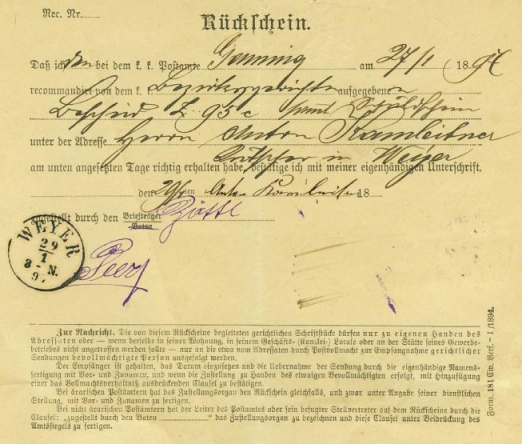 Rec. Nr.
Rückschein.
Daß ich den bei dem k. k. Postamte Gaming am 27/1 189
recommandiert von dem k. Bezirksgerichte aufgegebenen
Bescheid Z. 95 c samt Schuldschein
unter der Adresse Herrn Anton Kamleitner
in Weyer
am unten angesetzten Tage richtig erhalten habe, bestätige ich mit meiner eigenhändigen Unterschrift.
den 29/1 ten Anton Kamleitner 18
Zugestellt durch den Briefträger
Boten
WEYER
29
1
8-N.
9.
Zur Nachricht. Die von diesem Rückscheine begleiteten gerichtlichen Schriftstücke dürfen nur zu eigenen Handen des
Adressaten oder — wenn derselbe in seiner Wohnung, in seinem Geschäfts-(Kanzlei-) Locale oder an der Stätte seines Gewerbe-
betriebes nicht angetroffen werden sollte — nur an die etwa vom Adressaten durch Postvollmacht zur Empfangnahme gerichtlicher
Sendungen bevollmächtigte Person ausgefolgt werden.
Der Empfänger ist gehalten, das Datum einzusetzen und die Uebernahme der Sendung durch die eigenhändige Namens-
fertigung mit Vor- und Zunamen, und wenn die Zustellung zu Handen des etwaigen Bevollmächtigten erfolgt, mit Hinzufügung
einer das Vollmachtsverhältnis ausdrückenden Clausel zu bestätigen.
Bei ärarischen Postämtern hat das Zustellungsorgan den Rückschein gleichfalls, und zwar unter Angabe seiner dienstlichen
Stellung, mit Vor- und Zunamen zu fertigen.
Bei nicht ärarischen Postämtern hat der Leiter des Postamtes oder sein befugter Stellvertreter auf dem Rückscheine durch die
Clausel: „zugestellt durch den Boten" das Zustellungsorgan zu bezeichnen und diese Clausel unter Beidrückung des
Amtssiegels zu fertigen.
1/1894.